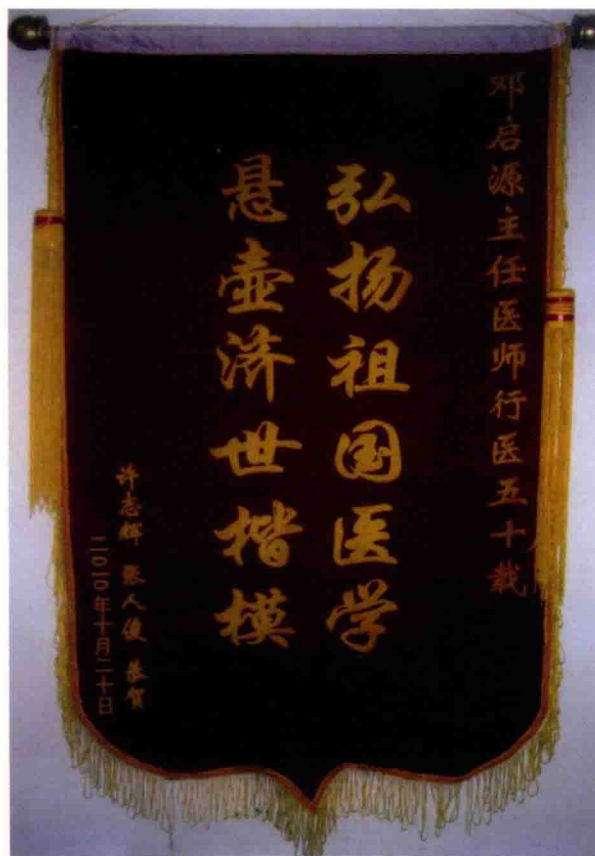 邓启源主任医师行医五十载
弘扬祖国医学
悬壶济世楷模
许志辉 张人俊 恭贺
二〇一〇年十月二十日